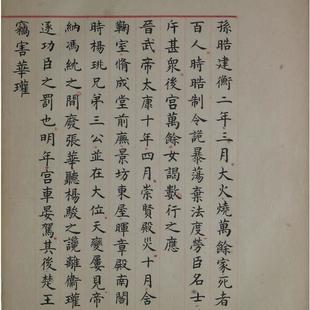 孫晧建衡二年三月大火燒萬餘家死者
百人時晧制令詭暴蕩棄法度勞臣名士
斥甚衆後宮萬餘女謁數行之應
晉武帝太康十年四月崇賢殿災十月含
鞠室脩成堂前廡景坊東屋暉章殿南閣
時楊珧兄弟三公並在大位天變屢見帝
納馮紞之間廢張華聽楊駿之讒離衛瓘
逐功臣之罰也明年宮車晏駕其後楚王
竊害華瓘